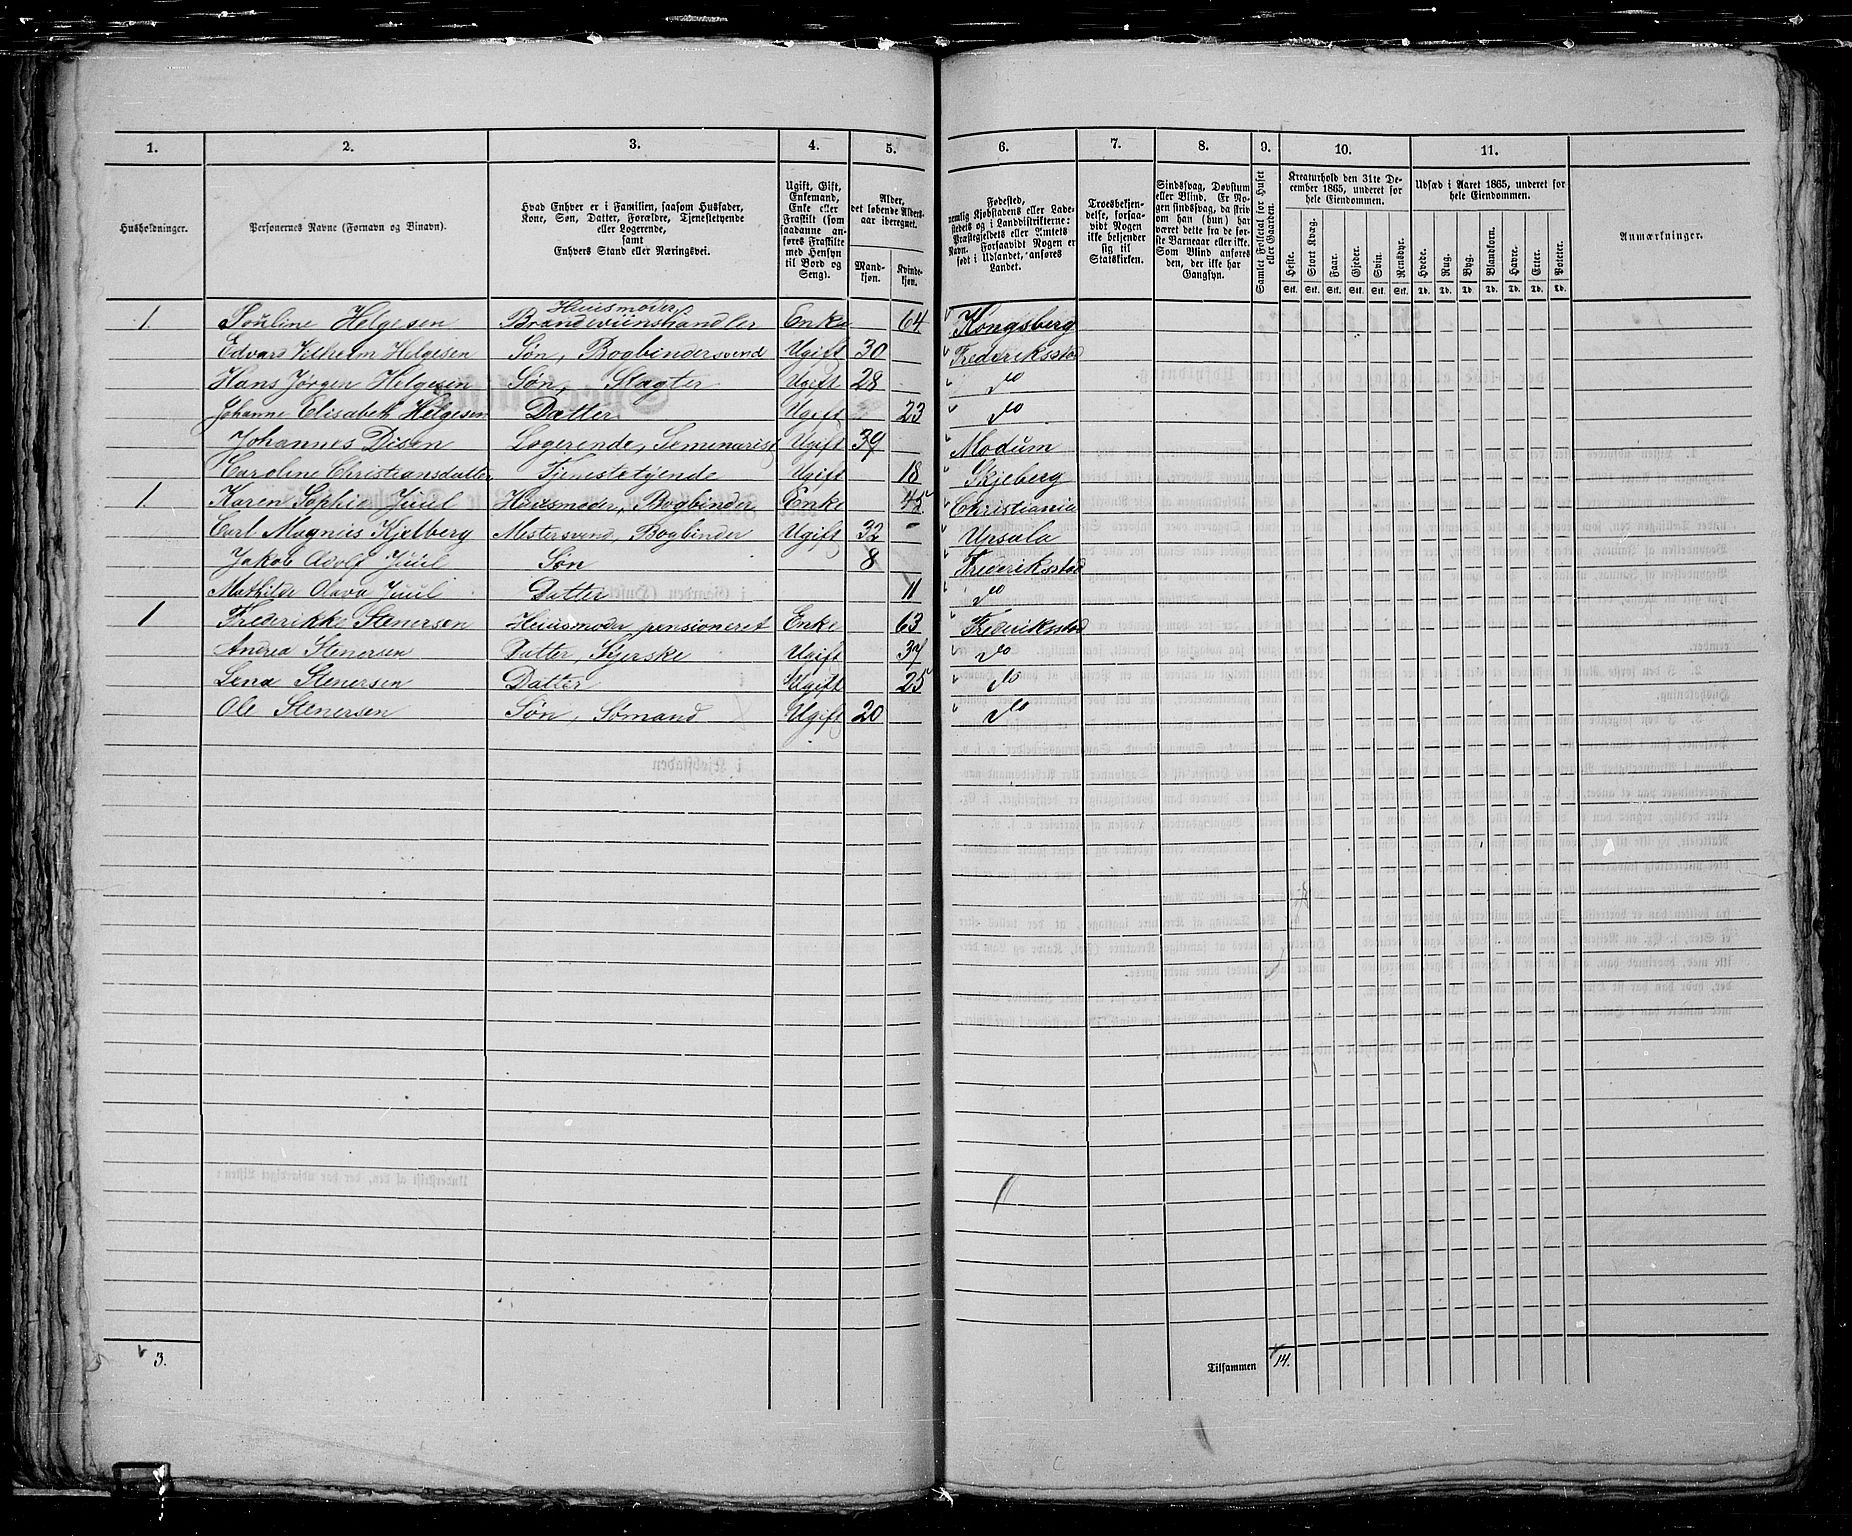 1. 2. 3. 4. 5. 6. 7. 8. 9. 10. 11.
Husholdninger.
Personernes Navne (Fornavn og Binavn).
Hvad Enhver er i Familien, saasom Husfader, Kone, Søn, Datter, Forældre, Tjenestetyende eller Logerende, samt Enhvers Stand eller Næringsvei.
Ugift, Gift, Enkemand, Enke eller Fraskilt (som saadanne anføres Fraskilte med Hensyn til Bord og Seng).
Alder, det løbende Alders-aar iberegnet.
Mandkjøn. Kvindekjøn.
Fødested, nemlig Kjøbstadens eller Ladestedets og i Landdistrikterne: Præstegjeldets eller Amtets Navn. Forsaavidt Nogen er født i Udlandet, anføres Landet.
Troesbekjendelse, forsaavidt Nogen ikke bekjender sig til Statskirken.
Sindssvag, Døvstum eller Blind. Er Nogen sindssvag, da skrives om han (hun) har været dette fra de første Barneaar eller ikke. Som Blind anføres den, der ikke har Gangsyn.
Samlet Folketal for Huset eller Gaarden.
Kreaturhold den 31te December 1865, underet for hele Eiendommen.
Heste. Stort Kvæg. Faar. Gjeder. Svin. Rensdyr.
Stk. Stk. Stk. Stk. Stk. Stk.
Udsæd i Aaret 1865, underet for hele Eiendommen.
Hvede. Rug. Byg. Blandkorn. Havre. Erter. Poteter.
Td. Td. Td. Td. Td. Td. Td.
Anmærkninger.
1. Pouline Helgesen Huusmoder Brændeviinshandler Enke 64 Kongsberg
Edvard Vilhelm Helgesen Søn, Bogbindersvend Ugift 30 Frederiksstad
Hans Jørgen Helgesen Søn, Slagter Ugift 28 do
Johanne Elisabeth Helgesen Datter Ugift 23 do
Johannes Disen Logerende, Seminarist Ugift 39 Modum
Karoline Christiansdatter Tjenestetyende Ugift 18 Skjeberg
1. Karen Sophie Juul Huusmoder, Bogbinder Enke 45 Christiania
Carl Magnis Kjelberg Mestersvend, Bogbinder Ugift 32 Upsala
Jakob Adolf Juul Søn 8 Frederiksstad
Mathilde Olava Juul Datter 11 do
1 Frederikke Stenersen Huusmoder pensioneret Enke 63 Frederiksstad
Andrea Stenersen Datter, Syerske Ugift 37 do
Lena Stenersen Datter Ugift 25 do
Ole Stenersen Søn, Sømand Ugift 20 do
3. Tilsammen 14.